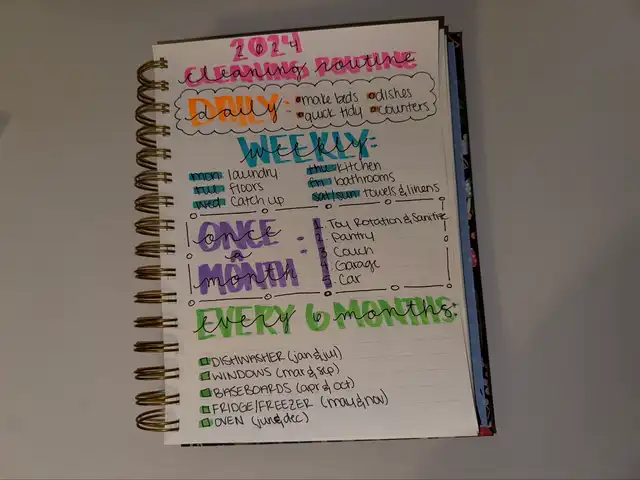 2024
CLEANING ROUTINE
DAILY: • make beds • dishes
• quick tidy • counters
WEEKLY:
mon laundry thu kitchen
tue floors fri bathrooms
wed catch up sat/sun towels & linens
ONCE a MONTH:
1. Toy Rotation & Sanitize
2. Pantry
3. Couch
4. Garage
5. Car
EVERY 6 MONTHS:
DISHWASHER (jan & jul)
WINDOWS (mar & sep)
BASEBOARDS (apr & oct)
FRIDGE/FREEZER (may & nov)
OVEN (jun & dec)